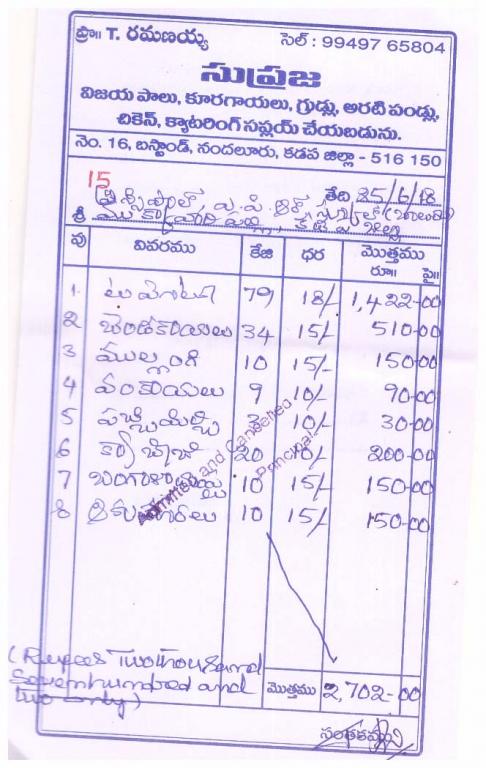 ప్రొ॥ T. రమణయ్య సెల్ : 99497 65804
సుప్రజ
విజయ పాలు, కూరగాయలు, గ్రుడ్లు, అరటి పండ్లు,
చికెన్, క్యాటరింగ్ సప్లయ్ చేయబడును.
నెం. 16, బస్టాండ్, నందలూరు, కడప జిల్లా - 516 150
15
ప్రిన్సిపాల్, ఏ.పి.ఆర్, స్కూల్ తేది 25/6/18
శ్రీ జిల్లా
పు వివరము కేజి ధర మొత్తము
రూ॥ పై॥
1. టమోటా 79 18/- 1,422-00
2 బెండకాయలు 34 15/- 510-00
3 ముల్లంగి 10 15/- 150-00
4 వంకాయలు 9 10/- 90-00
5 పచ్చిమిర్చి 3 10/- 30-00
6 క్యాబేజి 20 10/- 200-00
7 బంగాళాదుంప 10 15/- 150-00
8 10 15/- 150-00
Admitted and Cancelled
Principal
(Rupees Two thousand
Seven hundred and
two only)
మొత్తము 2,702-00